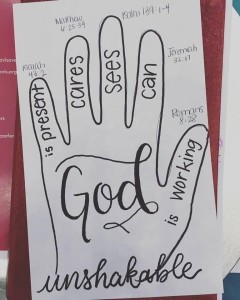 Isaiah
43:2
is present
Matthew
6:25-34
cares
Psalm 139:1-4
sees
Jeremiah
32:17
can
Romans
8:28
is working
God
unshakable